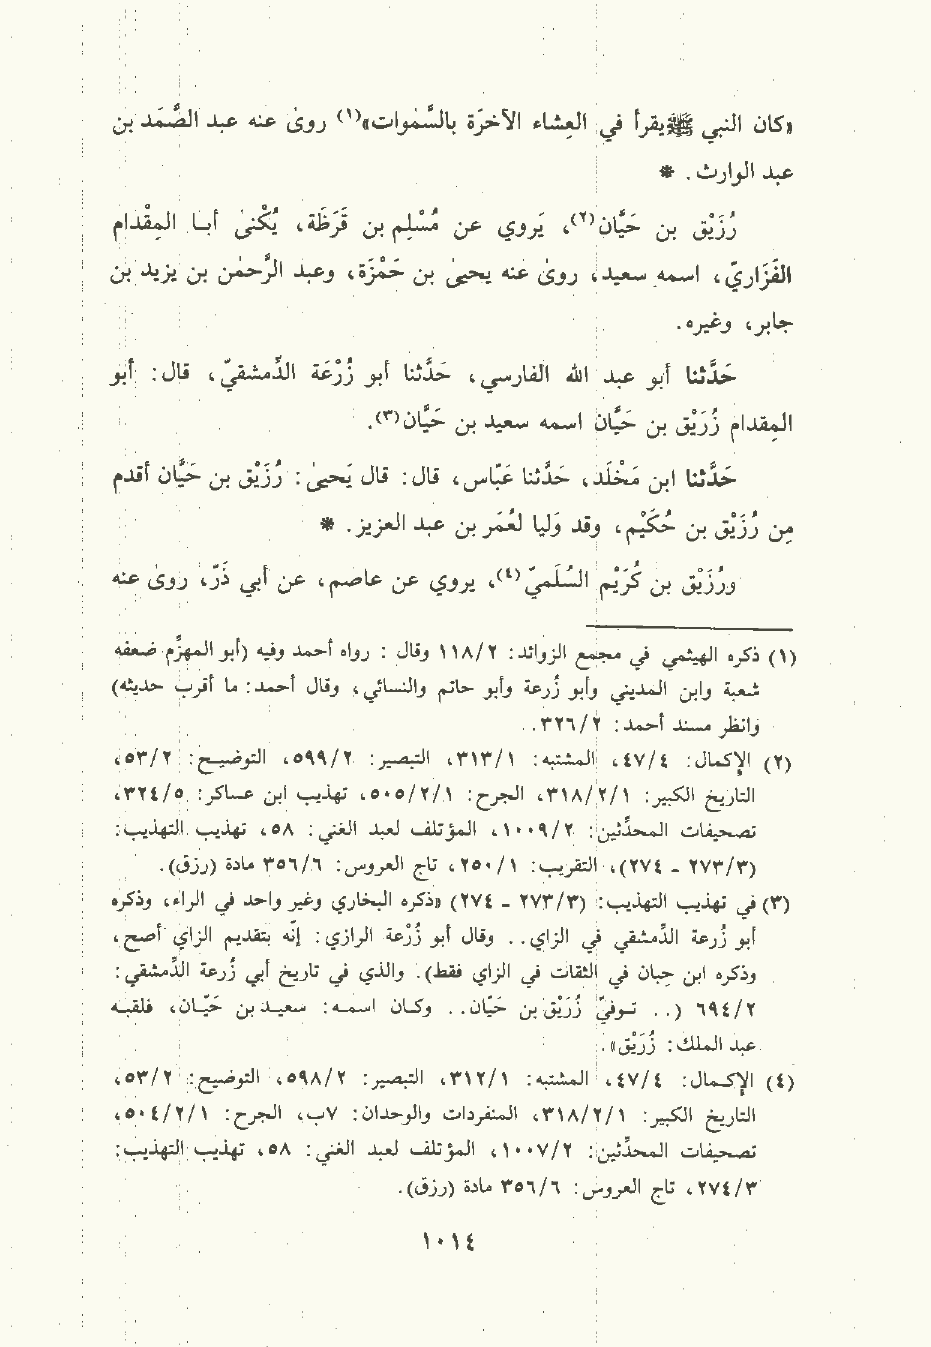 «كان النبي ﷺ يقرأ في العِشاء الآخرَة بالسَّمٰوات»(١) روىٰ عنه عبد الصَّمَد بن
عبد الوارث. *
رُزَيْق بن حَيَّان(٢)، يَروي عن مُسْلِم بن قَرَظَة، يُكْنىٰ أبا المِقْدام
الفَزَاريّ، اسمه سعيد، روىٰ عنه يحيىٰ بن حَمْزَة، وعبد الرَّحمٰن بن يزيد بن
جابر، وغيره.
حَدَّثنا أبو عبد الله الفارسي، حَدَّثنا أبو زُرْعَة الدِّمشقيّ، قال: أبو
المِقدام زُرَيْق بن حَيَّان اسمه سعيد بن حَيَّان(٣).
حَدَّثنا ابن مَخْلَد، حَدَّثنا عَبّاس، قال: قال يَحيىٰ: رُزَيْق بن حَيَّان أقدم
مِن رُزَيْق بن حُكَيْم، وقد وَليا لعُمَر بن عبد العزيز. *
ورُزَيْق بن كُرَيْم السُلَميّ(٤)، يروي عن عاصم، عن أبي ذَرّ، روىٰ عنه
(١) ذكره الهيثمي في مجمع الزوائد: ١١٨/٢ وقال : رواه أحمد وفيه (أبو المهزِّم ضعفه
شعبة وابن المديني وأبو زُرعة وأبو حاتم والنسائي، وقال أحمد: ما أقرب حديثه)
وانظر مسند أحمد: ٣٢٦/٢..
(٢) الإكمال: ٤٧/٤، المشتبه: ٣١٣/١، التبصير: ٥٩٩/٢، التوضيح: ٥٣/٢،
التاريخ الكبير: ٣١٨/٢/١، الجرح: ٥٠٥/٢/١، تهذيب ابن عساكر: ٣٢٤/٥،
تصحيفات المحدِّثين: ١٠٠٩/٢، المؤتلف لعبد الغني: ٥٨، تهذيب التهذيب:
(٢٧٣/٣ - ٢٧٤)، التقريب: ٢٥٠/١، تاج العروس: ٣٥٦/٦ مادة (رزق).
(٣) في تهذيب التهذيب: (٢٧٣/٣ - ٢٧٤) «ذكره البخاري وغير واحد في الراء، وذكره
أبو زُرعة الدِّمشقي في الزاي.. وقال أبو زُرْعة الرازي: إنّه بتقديم الزاي أصح،
وذكره ابن حِبان في الثقات في الزاي فقط). والذي في تاريخ أبي زُرعة الدِّمشقي:
٦٩٤/٢ (.. توفيّ زُرَيْق بن حَيّان.. وكان اسمه: سعيد بن حَيّان، فلقبه
عبد الملك: زُرَيْق».
(٤) الإكمال: ٤٧/٤، المشتبه: ٣١٢/١، التبصير: ٥٩٨/٢، التوضيح: ٥٣/٢،
التاريخ الكبير: ٣١٨/٢/١، المنفردات والوحدان: ٧ب، الجرح: ٥٠٤/٢/١،
تصحيفات المحدِّثين: ١٠٠٧/٢، المؤتلف لعبد الغني: ٥٨، تهذيب التهذيب:
٢٧٤/٣، تاج العروس: ٣٥٦/٦ مادة (رزق).
١٠١٤